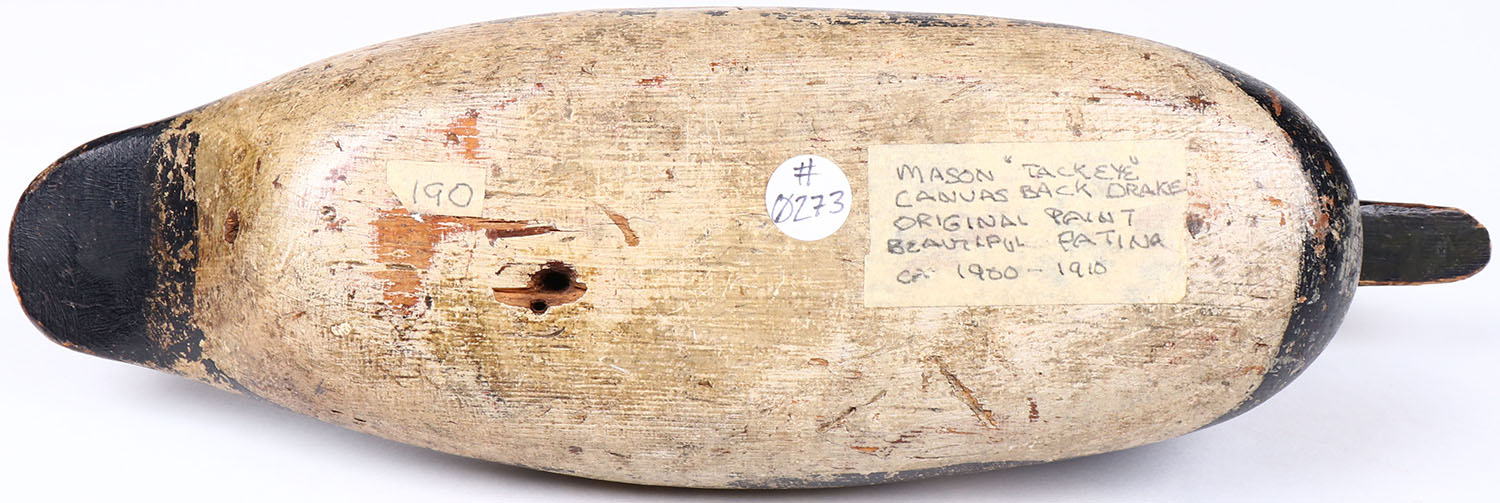 190
#
0273
MASON "TACKEYE"
CANVAS BACK DRAKE
ORIGINAL PAINT
BEAUTIFUL PATINA
CA 1900-1910